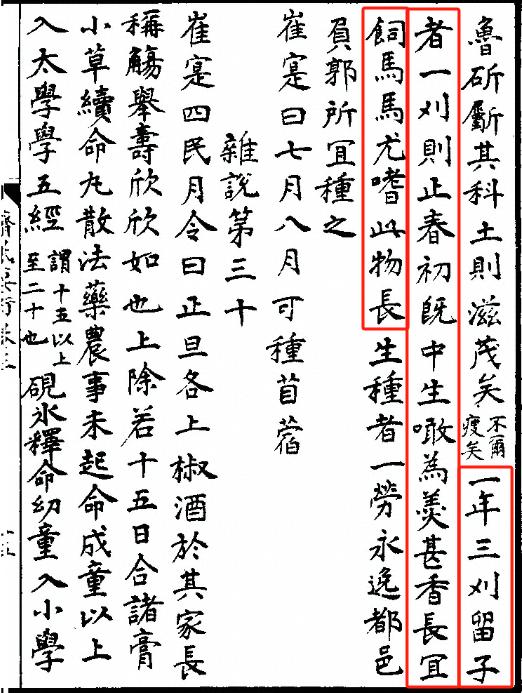 魯斫斸其科土則滋茂矣不爾瘦矣一年三刈留子
者一刈則止春初既中生噉為羹甚香長宜
飼馬馬尤嗜此物長生種者一勞永逸都邑
負郭所宜種之
崔寔曰七月八月可種苜蓿
雜說第三十
崔寔四民月令曰正旦各上椒酒於其家長
稱觴舉壽欣欣如也上除若十五日合諸膏
小草續命丸散法藥農事未起命成童以上
入太學學五經謂十五以上至二十也硯冰釋命幼童入小學